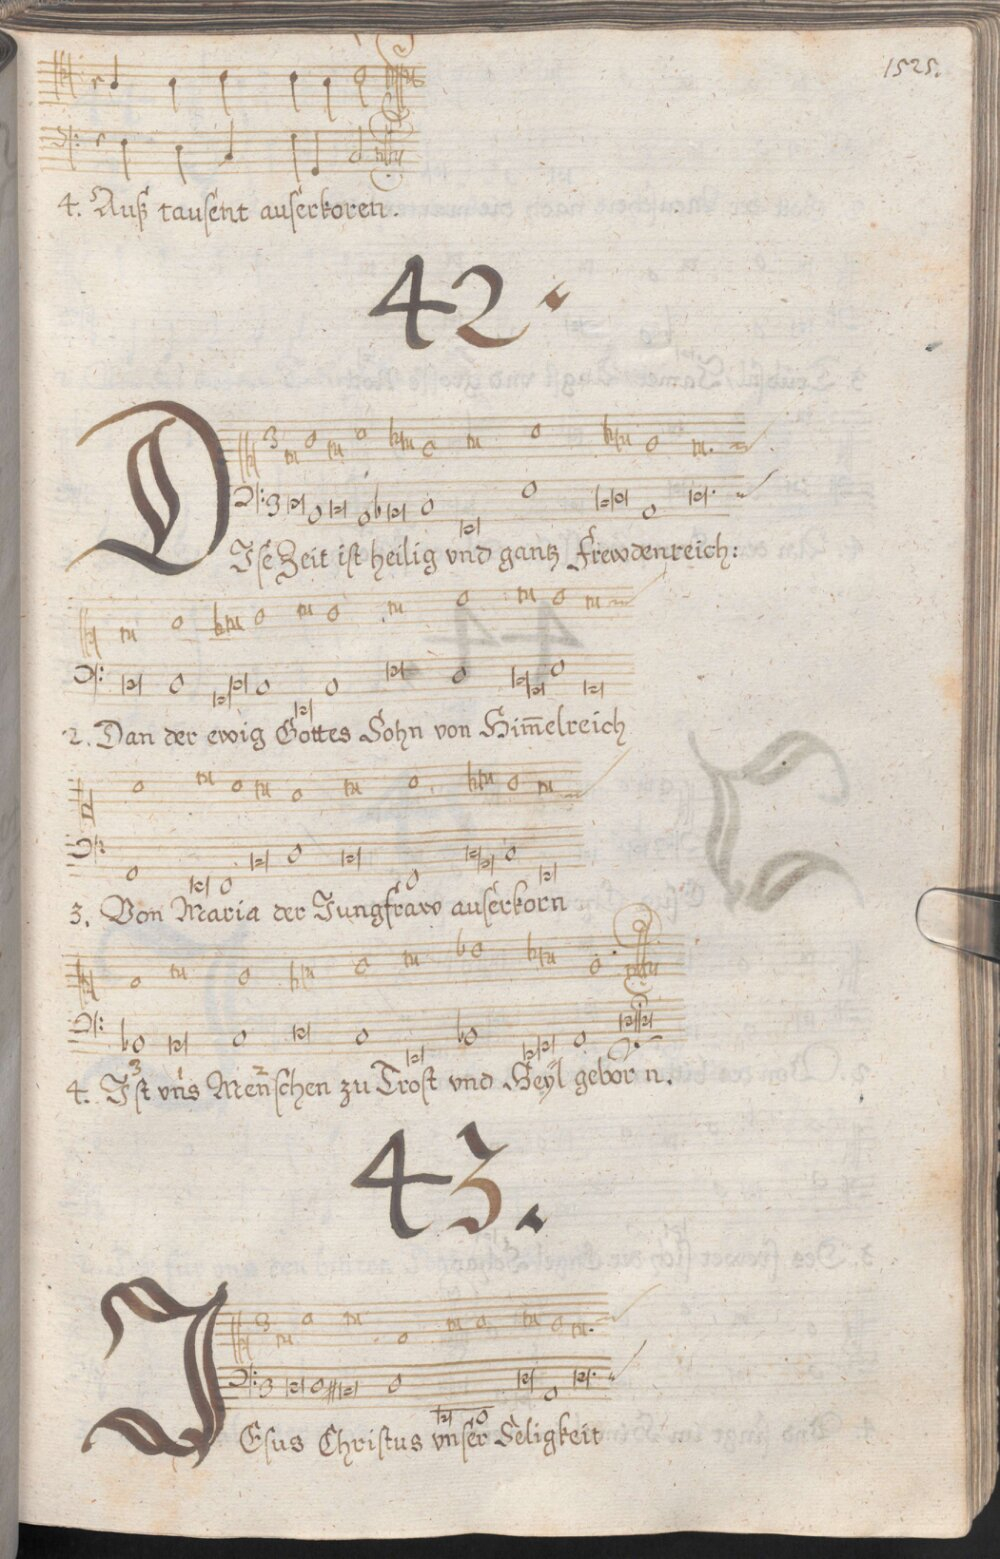 1525.
4. Auß tausent auserkoren.
42.
DIse Zeit ist heilig vnd gantz frewdenreich:
2. Dan der ewig Gottes Sohn von Him̄elreich
3. Von Maria der Jungfraw auserkorn
4. Ist vns Menschen zu Trost vnd Heyl gebor n.
43.
JEsus Christus vnser Seligkeit